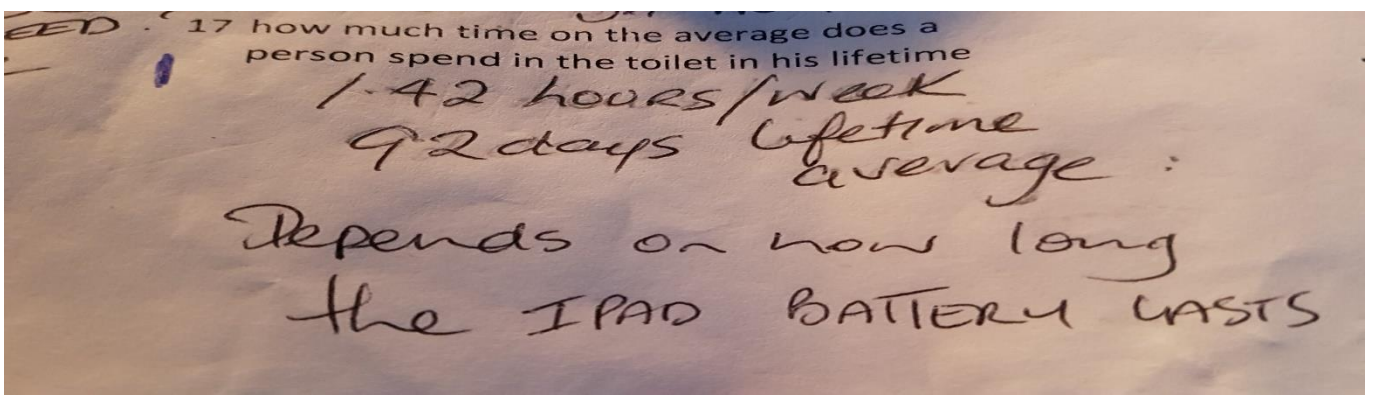 EED. 17 how much time on the average does a
person spend in the toilet in his lifetime
1.42 hours/week
92 days Lifetime
average :
Depends on how long
the IPAD BATTERY LASTS